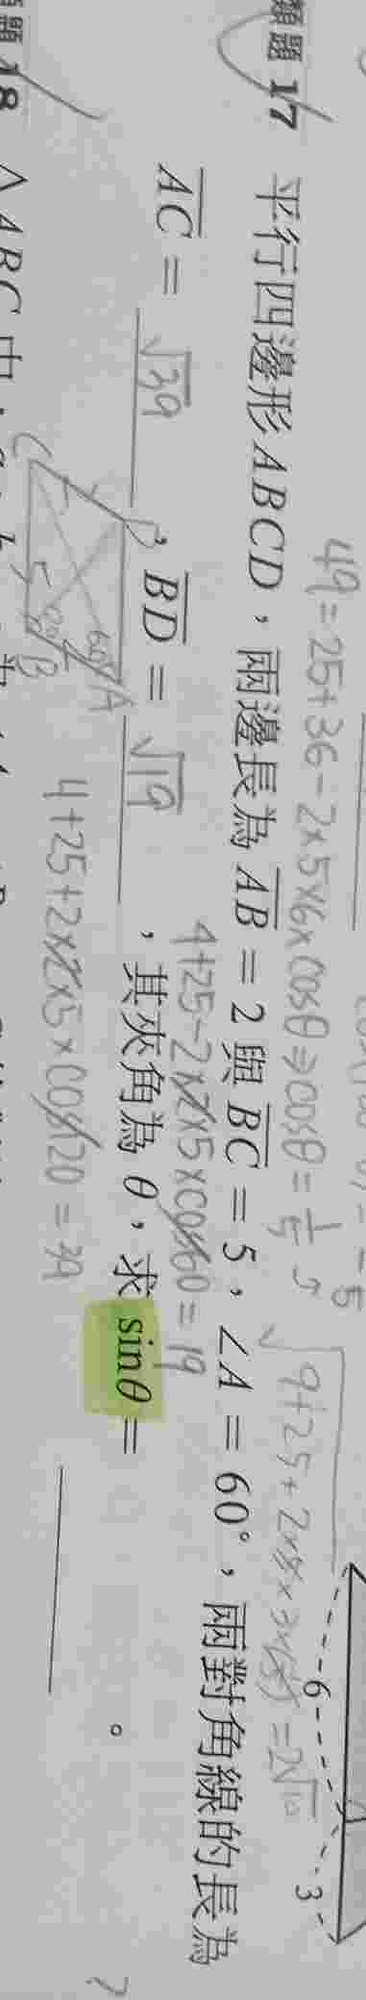 類題 17 平行四邊形 ABCD，兩邊長為 AB = 2 與 BC = 5，∠A = 60°，兩對角線的長為
AC = √39，BD = √19，其夾角為 θ，求 sinθ = 。
49 = 25 + 36 - 2×5×6×cosθ ⇒ cosθ = 1/5
4+25-2×2×5×cos60 = 19
4+25+2×2×5×cos120 = 39
C
B
A
5
60°
6
3
?
類題 18 △ABC 中，